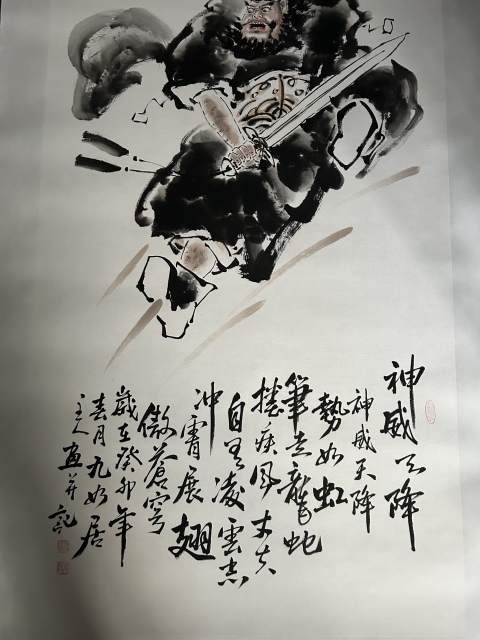 神威天降
神威天降
勢如虹
筆走龍蛇
捲疾風 丈夫
自有凌雲志
冲霄展翅
傲蒼穹
歲在癸卯年
春月九如居
主人画并記